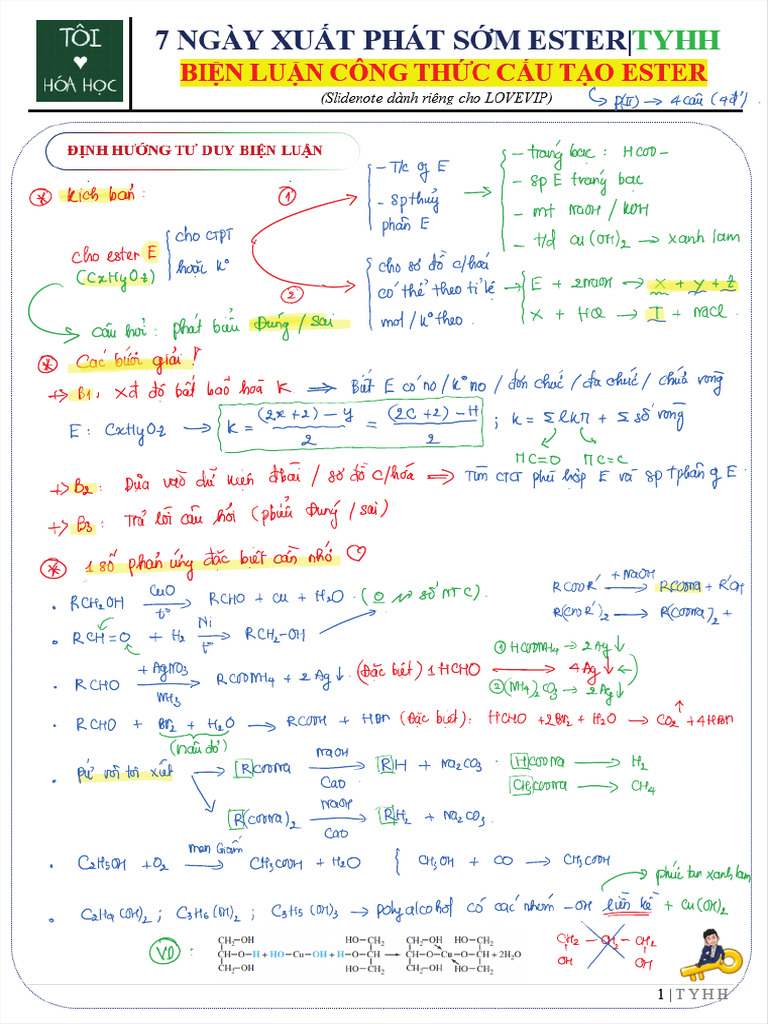 TÔI
♥
HÓA HỌC
7 NGÀY XUẤT PHÁT SỚM ESTER|TYHH
BIỆN LUẬN CÔNG THỨC CẤU TẠO ESTER
(Slidenote dành riêng cho LOVEVIP)
↳ P(II) → 4 câu (4đ')
ĐỊNH HƯỚNG TƯ DUY BIỆN LUẬN
* Kịch bản:
cho ester E
(CxHyOz)
cho CTPT
hoặc K°
①
- T/c of E
- sp thuỷ
phân E
- tráng bạc: HCOO-
- sp E tráng bạc
- mt NaOH / KOH
- t/d Cu(OH)2 → xanh lam
②
cho sơ đồ c/hoá
có thể theo tỉ lệ
mol / K° theo
E + 2NaOH → X + Y + Z
X + HCl → T + NaCl
câu hỏi: phát biểu Đúng / Sai
* Các bước giải!
+> B1, xđ độ bất bão hoà K ⇒ Biết E có no / K° no / đơn chức / đa chức / chứa vòng
E: CxHyOz → K = (2x+2) - y / 2 = (2C+2) - H / 2 ; k = Σlkπ + Σ số vòng
πC=O πC=C
+> B2: Dựa vào dữ kiện đbài / sơ đồ c/hóa ⇒ Tìm CTCT phù hợp E và sp tphân of E
+> B3: Trả lời câu hỏi (phiểu Đúng / sai)
* 1 số phản ứng đặc biệt cần nhớ ♡
• RCH2OH CuO → t° RCHO + Cu + H2O.
RCOOR' + NaOH → RCOONa + R'OH
R(COOR')2 → R(COONa)2 +
• RCH=O + H2 Ni → t° RCH2-OH
• RCHO + AgNO3 → NH3 RCOONH4 + 2Ag↓ (Đặc biệt) 1HCHO → 4Ag↓
① HCOONH4 → 2Ag↓
② (NH4)2CO3 → 2Ag↓
• RCHO + Br2 + H2O → RCOOH + HBr (Đặc biệt): HCHO + 2Br2 + H2O → CO2↑ + 4HBr
(nâu đỏ)
• pứ vôi tôi xút
RCOONa NaOH → CaO RH + Na2CO3
• HCOONa → H2
CH3COONa → CH4
R(COONa)2 NaOH → CaO RH2 + Na2CO3.
• C2H5OH + O2 men Giấm → CH3COOH + H2O { CH3OH + CO → CH3COOH
phức tan xanh lam
• C2H4(OH)2 ; C3H6(OH)2 ; C3H5(OH)3 → polyalcohol có các nhóm -OH liền kề + Cu(OH)2
VD:
CH2–OH HO–CH2 CH2–OH HO–CH2
CH–O–H + HO–Cu–OH + H–O–CH → CH–O–Cu–O–CH + 2H2O
CH2–OH HO–CH2 CH2–OH HO–CH2
CH2 – CH2 – CH2
OH OH
1 | T Y H H